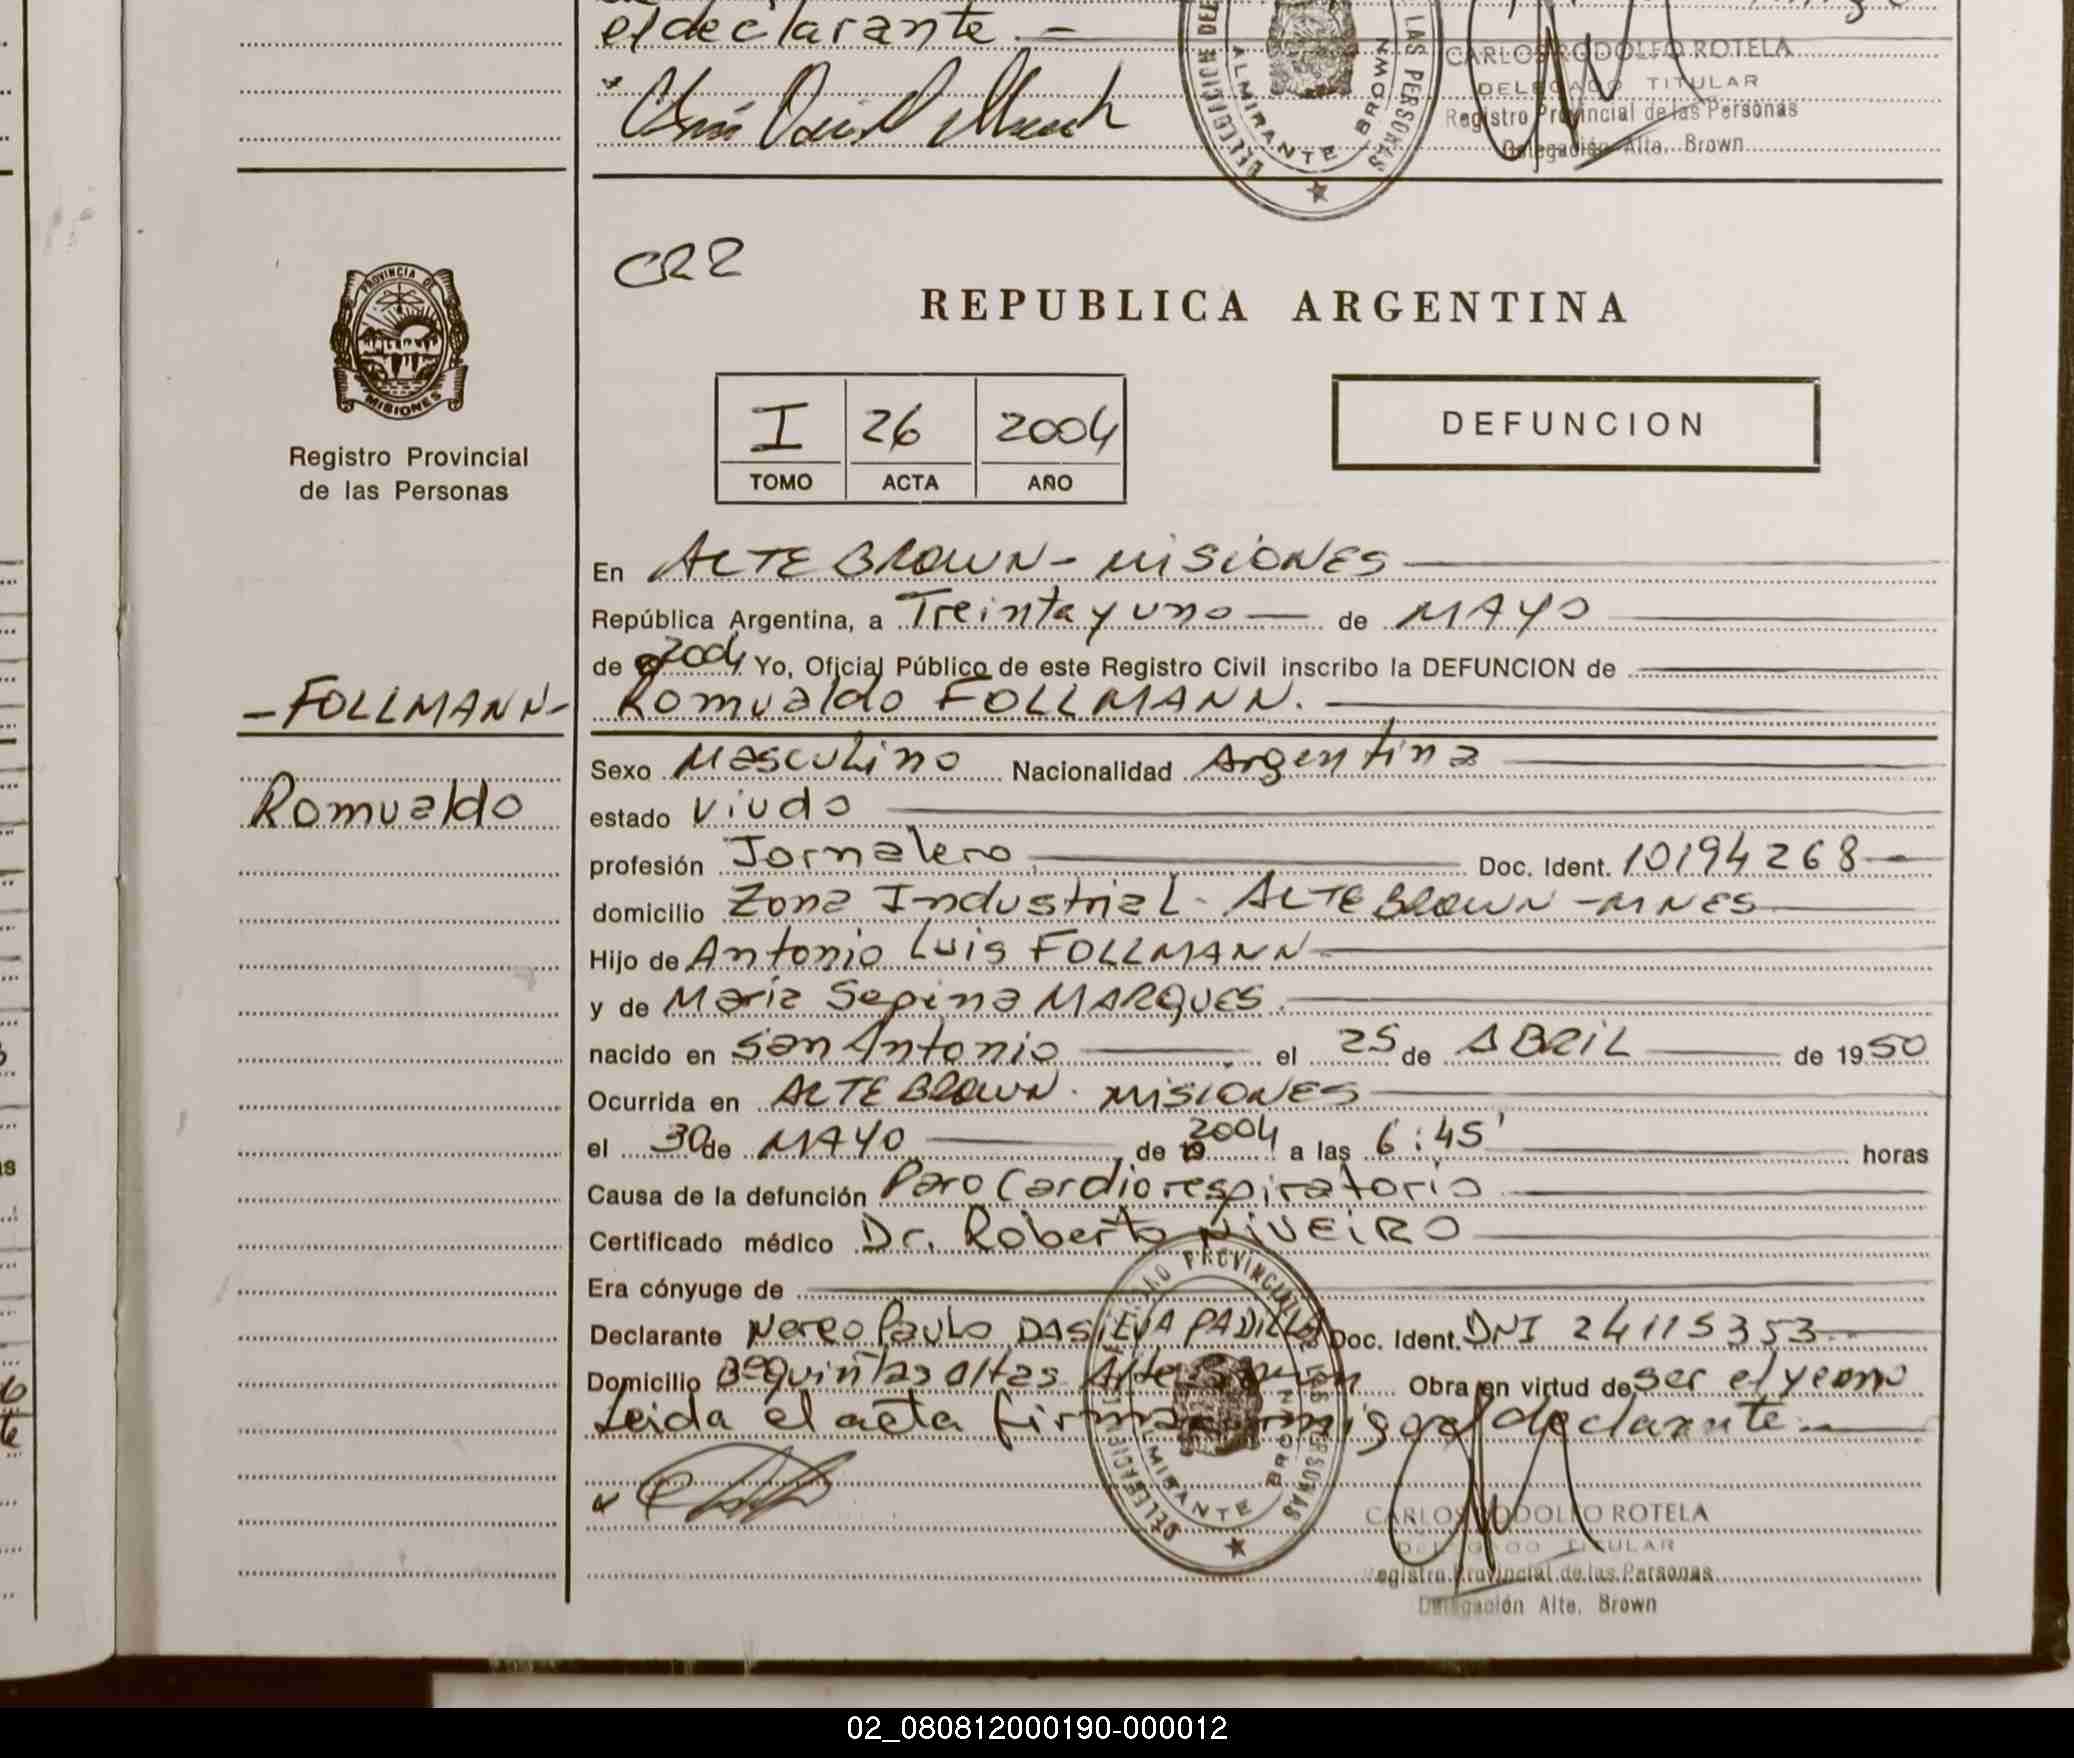 el declarante.-
DELEGACION DE LAS PERSONAS
ALMIRANTE BROWN
CARLOS RODOLFO ROTELA
DELEGADO TITULAR
Registro Provincial de las Personas
Delegación Alte. Brown
CR2
PROVINCIA DE
MISIONES
Registro Provincial
de las Personas
REPUBLICA ARGENTINA
I 26 2004
TOMO ACTA AÑO
DEFUNCION
En ALTE BROWN - MISIONES
República Argentina, a Treinta y uno de MAYO
de 2004 Yo, Oficial Público de este Registro Civil inscribo la DEFUNCION de
- FOLLMANN -
Romualdo FOLLMANN.
Sexo Masculino Nacionalidad Argentina
Romualdo
estado viudo
profesión Jornalero Doc. Ident. 10194268
domicilio Zona Industrial - ALTE BROWN - MNES
Hijo de Antonio Luis FOLLMANN
y de Maria Sepina MARQUES.
nacido en San Antonio el 25 de ABRIL de 1950
Ocurrida en ALTE BROWN - MISIONES
el 30 de MAYO de 19 2004 a las 6:45' horas
Causa de la defunción Paro Cardiorespiratorio
Certificado médico Dr. Roberto NIVEIRO
Era cónyuge de
Declarante Nereo Paulo DASILVA PADILLA Doc. Ident. DNI 24115353
Domicilio Bº quintas altas Alte Brown Obra en virtud de ser el yerno
Leida el acta firma conmigo el declarante.
PROVINCIAL DE LAS PERSONAS
DELEGACION
ALMIRANTE BROWN
CARLOS RODOLFO ROTELA
DELEGADO TITULAR
Registro Provincial de las Personas
Delegación Alte. Brown
02_080812000190-000012